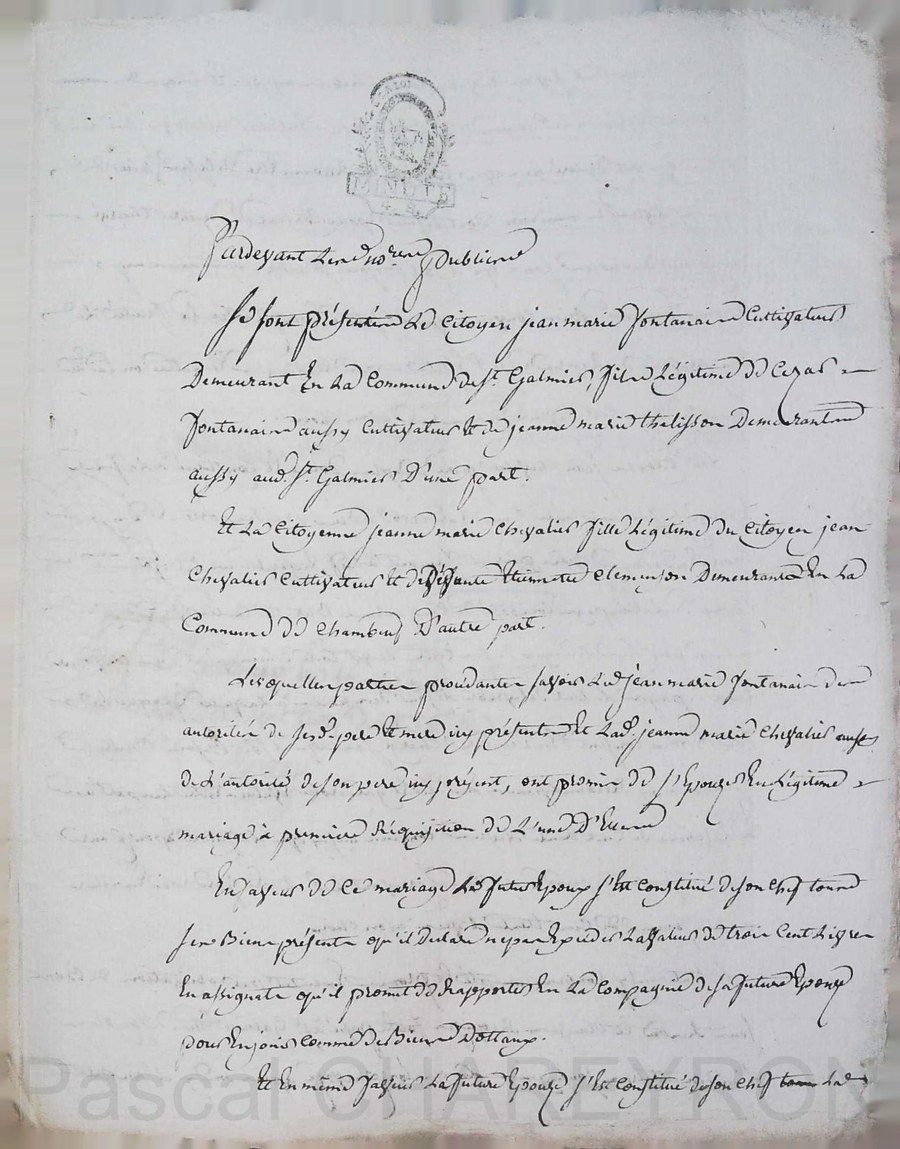 MINUTE
4. S.
Pardevant Les nores publics
Se sont présentés Le Citoyen jean marie fontanais Cultivateur
Demeurant En La Commune de St. Galmier, fils Légitime de Cezar
fontanais aussy Cultivateur Et de jeanne marie thelisson Demeurant
aussy aud. St. Galmier D'une part.
Et La Citoyenne jeanne marie Chevalier fille Légitime du Citoyen jean
Chevalier Cultivateur Et de Deffunte Etiennette Clemenson Demeurante En La
Commune de Chambeuf D'autre part.
Lesquelles parties procédantes savoir Led. jean marie fontanais de
autorités de sesd. pere Et mere icy présents Et Lad. jeanne marie Chevalier aussy
de L'autorité de son pere icy présent, ont promis de s'Epouser En Légitime
mariage à premiere Réquisition de L'une D'Elles
En faveur de Ce mariage Le futur Epoux s'Est Constitué de son Chef tous
ses Biens présents qu'il Declare ne pas Exceder La valeur de trois Cent Livres
En assignats qu'il promet de Rapporter En La Compagnie de sa future Epouse
pour En jouir Comme de Biens Dottaux.
Et En même faveur La future Epouse s'Est Constitué de son Chef tous La
Pascal CHAREYRON